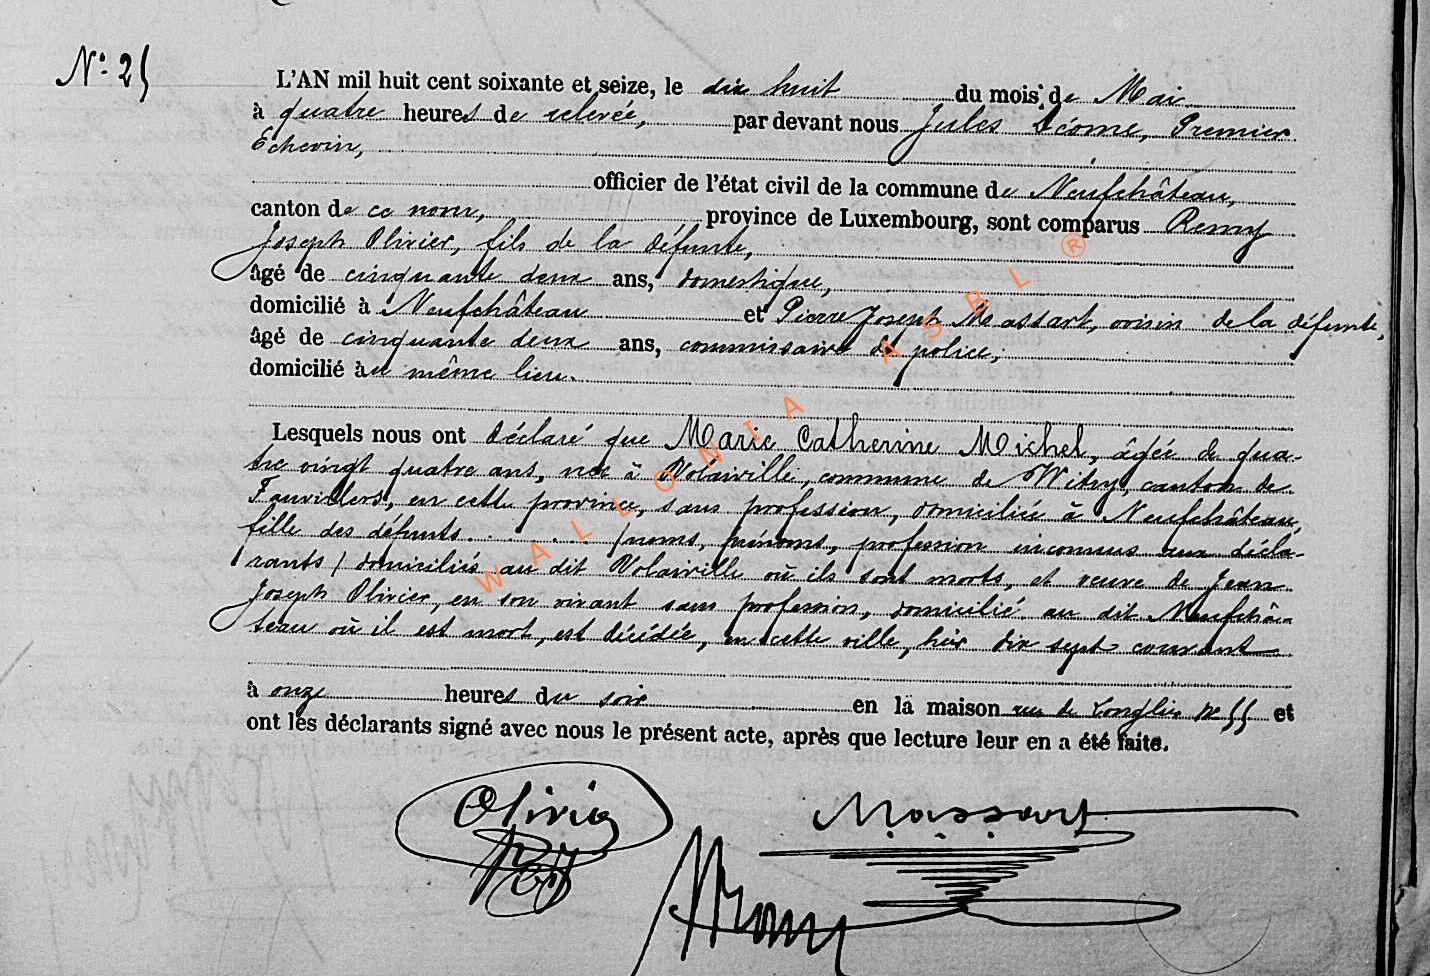 N.° 25
L'AN mil huit cent soixante et seize, le dix huit du mois de Mai
à quatre heures de relevée, par devant nous Jules Déome, Premier
Echevin,
officier de l'état civil de la commune de Neufchâteau,
canton de ce nom, province de Luxembourg, sont comparus Remy
Joseph Olivier, fils de la défunte,
âgé de cinquante deux ans, domestique,
domicilié à Neufchâteau et Pierre Joseph Massart, voisin de la défunte,
âgé de cinquante deux ans, commissaire de police,
domicilié au même lieu.
Lesquels nous ont déclaré que Marie Catherine Michel, âgée de qua-
tre vingt quatre ans, née à Volaiville, commune de Witry, canton de
Fauvillers, en cette province, sans profession, domiciliée à Neufchâteau,
fille des défunts . . . . . (noms, prénoms, profession inconnus aux décla-
rants) domiciliés au dit Volaiville où ils sont morts, et veuve de Jean
Joseph Olivier, en son vivant sans profession, domicilié au dit Neufchâ-
teau où il est mort, est décédée, en cette ville, hier dix sept courant
à onze heures du soir en la maison rue de Longlier n° 55 et
ont les déclarants signé avec nous le présent acte, après que lecture leur en a été faite.
Olivier
Massart
WALLONIA ASBL ®